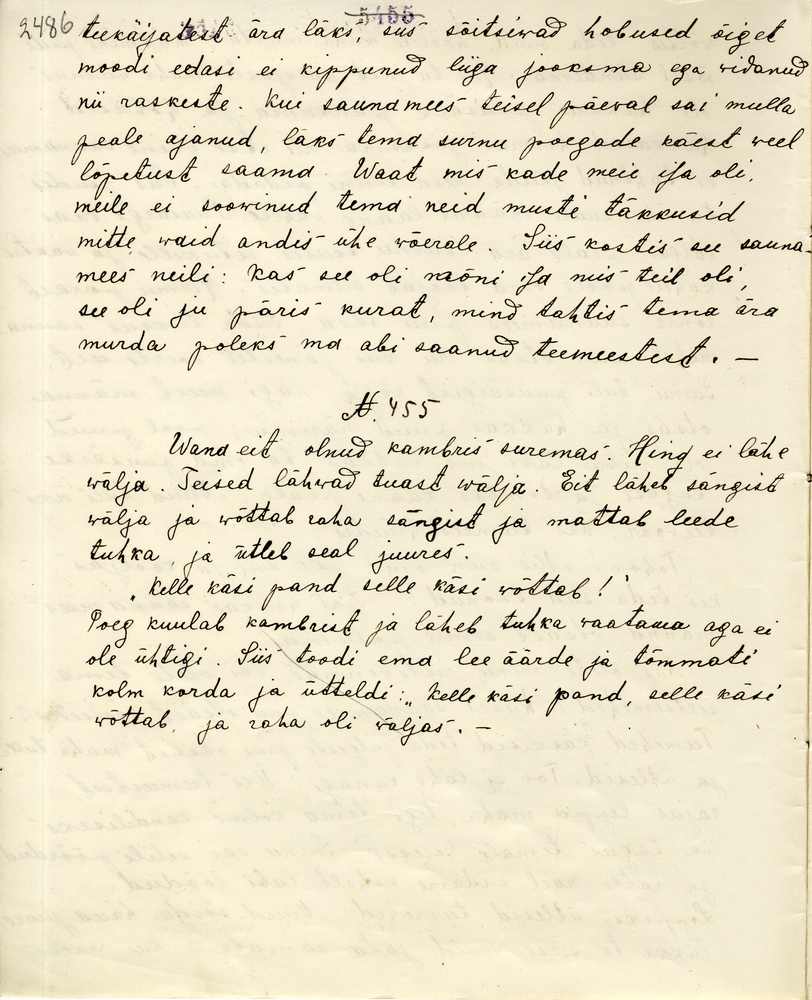 2486
5455
teekäijatest ära läks, siis sõitsiwad hobused õiget
moodi edasi ei kippunud liiga jooksma ega widanud
nii raskeste. Kui saunamees teisel päewal sai mulla
peale ajanud, läks tema surnu poegade käest weel
lõpetust saama. Waat mis kade meie isa oli,
meile ei soowinud tema neid musti täkkusid
mitte, waid andis ühe wõerale. Siis kostis see sauna-
mees neili: Kas see oli mõni isa mis teil oli,
see oli ju päris kurat, mind tahtis tema ära
murda poleks ma abi saanud teemeestest. —
N. 455
Wana eit olnud kambris suremas. Hing ei lähe
wälja. Teised lähwad tuast wälja. Eit läheb sängist
wälja ja wõttab raha sängist ja mattab leede
tuhka, ja ütleb seal juures.
„Kelle käsi pand selle käsi wõttab!"
Poeg kuulab kambrist ja läheb tuhka waatama aga ei
ole ühtigi. Siis toodi ema lee äärde ja tõmmati
kolm korda ja ütteldi: „Kelle käsi pand, selle käsi
wõttab, ja raha oli wäljas. —